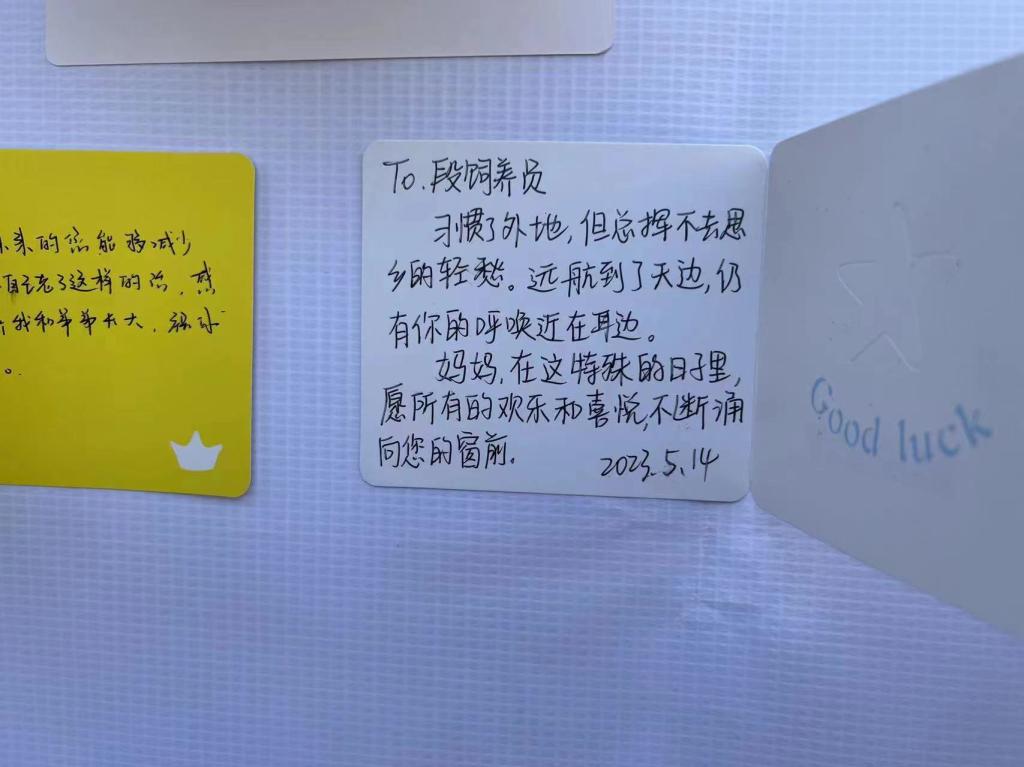 来的您能够减少
了这样的您，感
我和弟弟长大，
To.段饲养员
习惯了外地，但总挥不去思
乡的轻愁。远航到了天边，仍
有你的呼唤近在耳边。
妈妈，在这特殊的日子里，
愿所有的欢乐和喜悦，不断涌
向您的窗前。
2023.5.14
Good luck